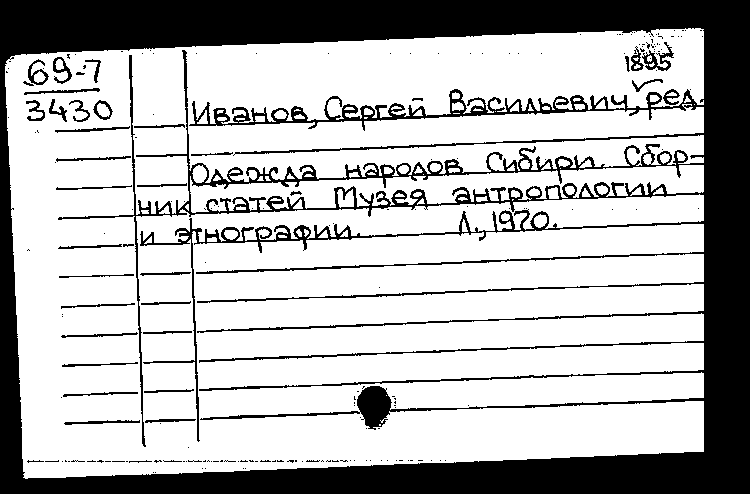 69-7
3430
1895
Иванов, Сергей Васильевич, ред.
Одежда народов Сибири. Сбор-
ник статей Музея антропологии
и этнографии. Л., 1970.